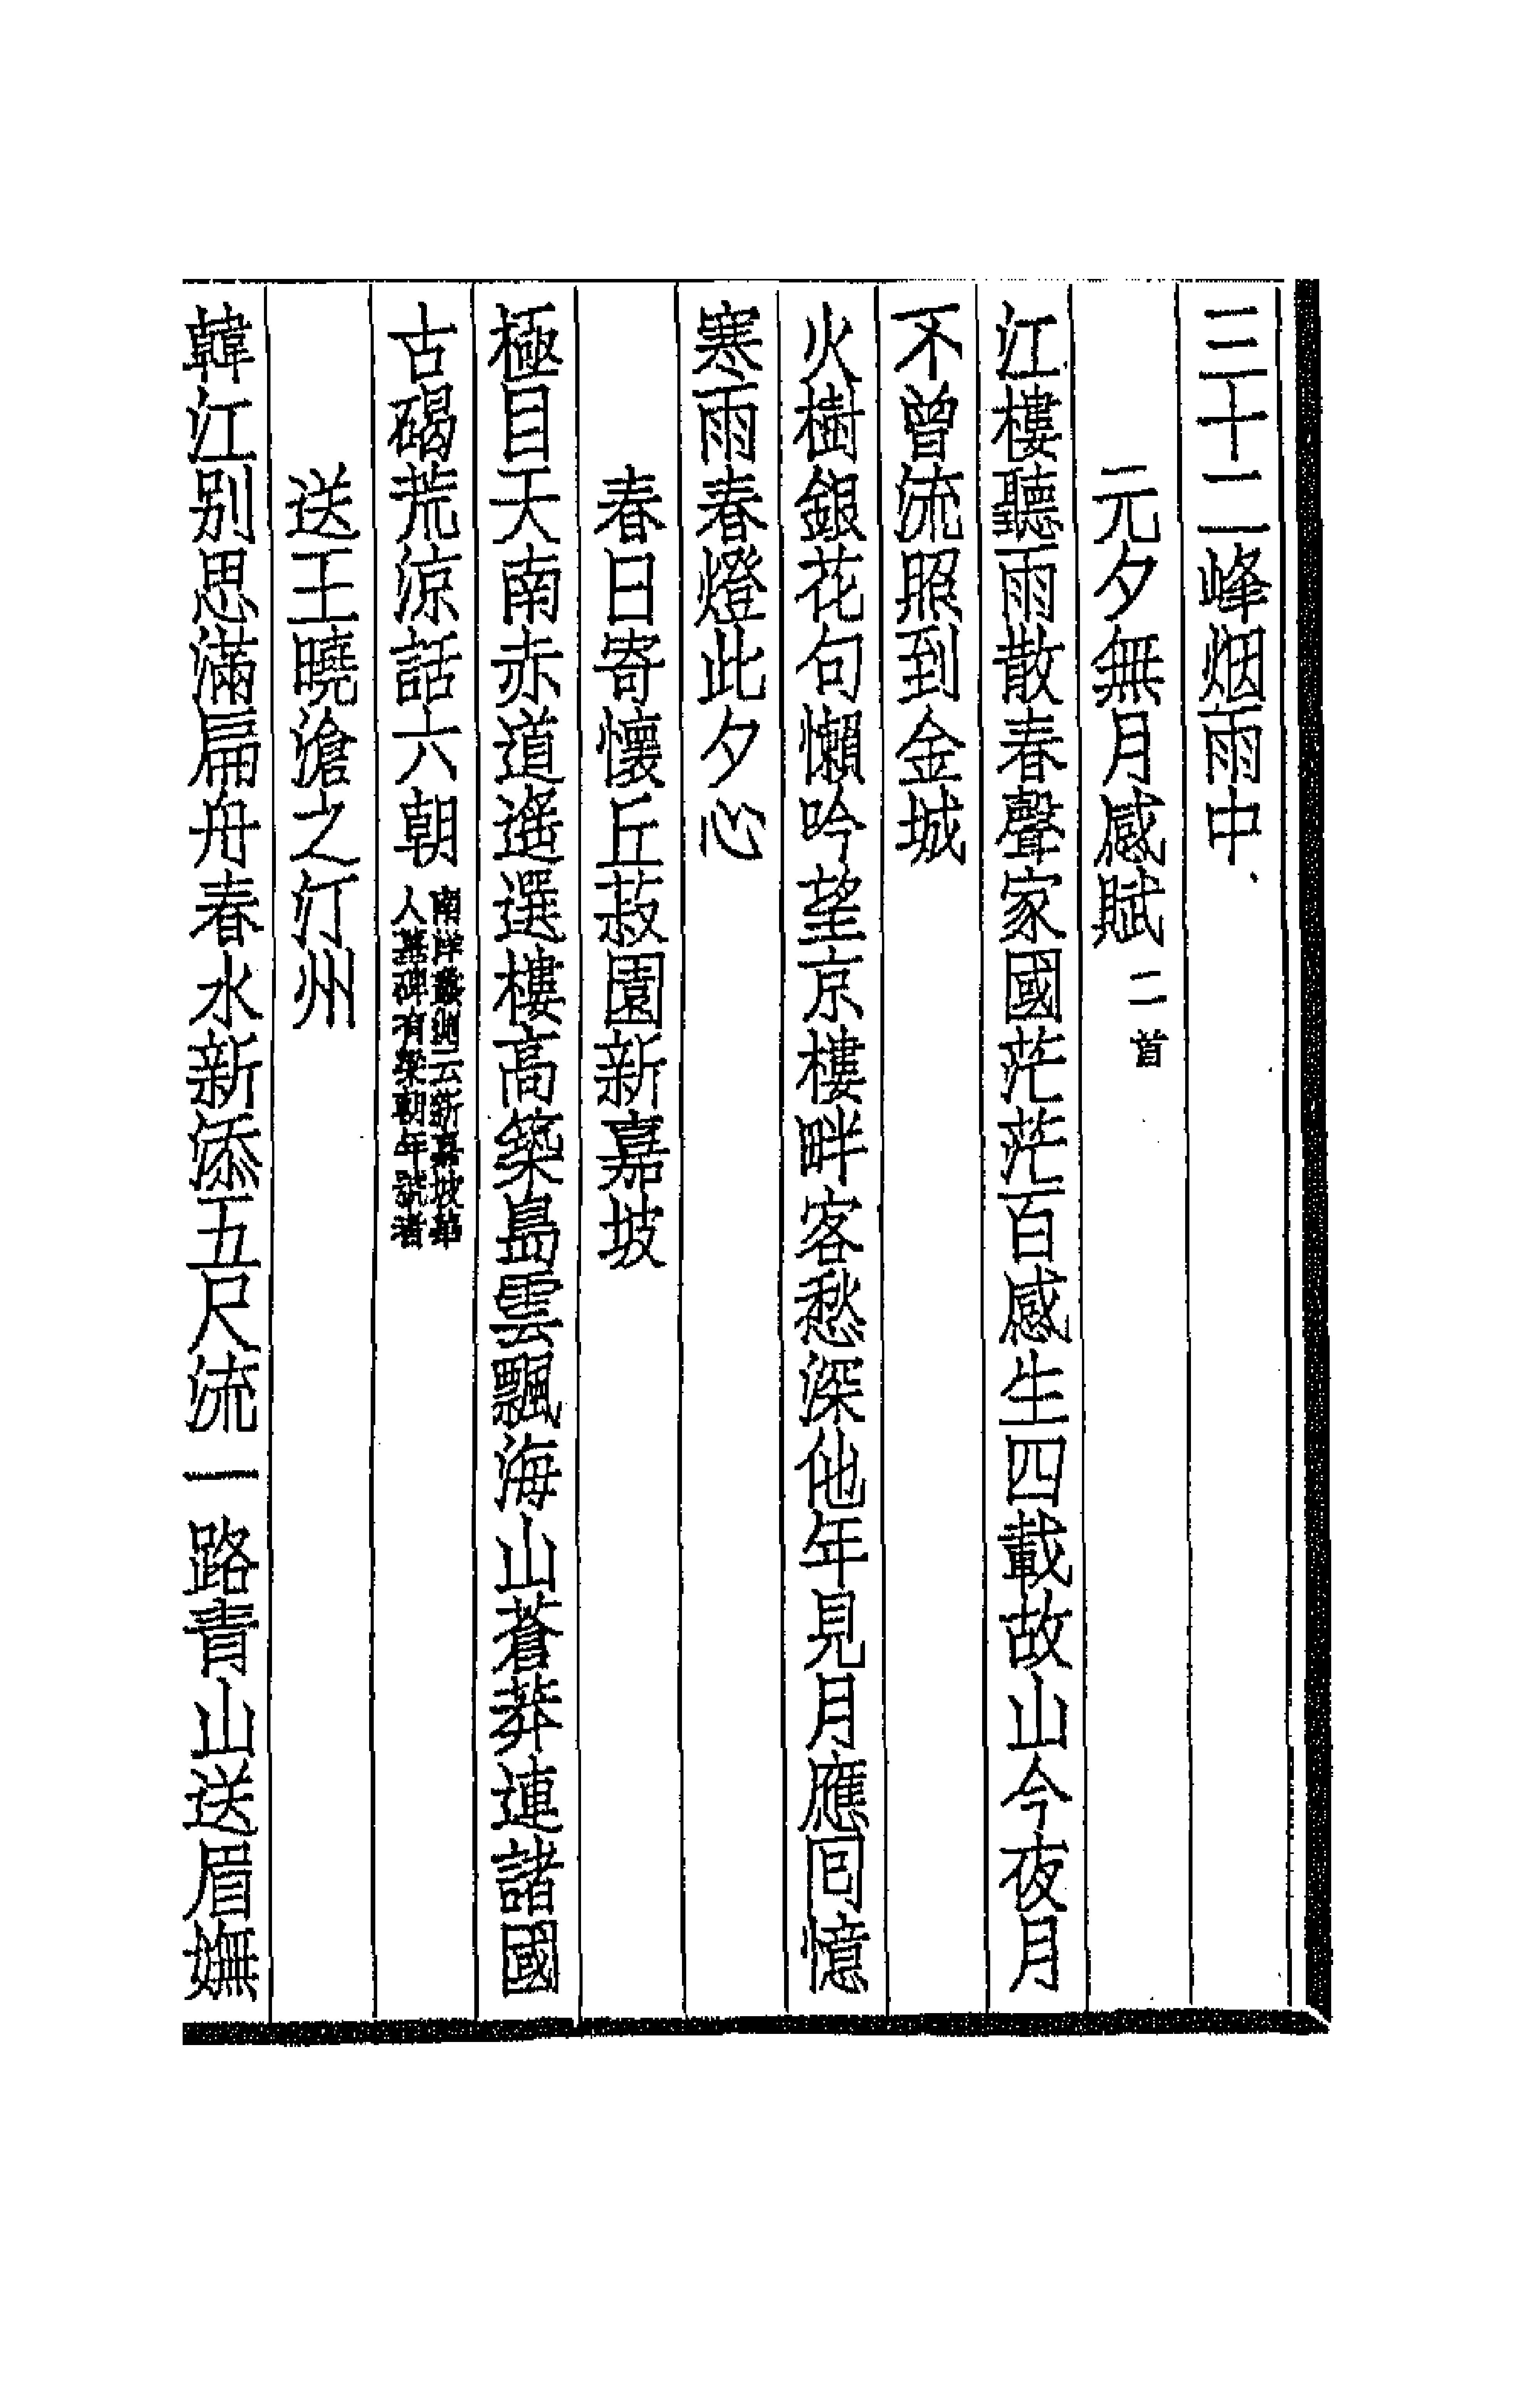 三十二峰烟雨中
元夕無月感賦二首
江樓聽雨散春聲家國茫茫百感生四載故山今夜月
不曾流照到金城
火樹銀花句懶吟望京樓畔客愁深他年見月應回憶
寒雨春燈此夕心
春日寄懷丘菽園新嘉坡
極目天南赤道遙選樓高築島雲飄海山蒼莽連諸國
古碣荒涼話六朝
南洋叢談云新嘉坡華
人墓碑有梁朝年號者
送王曉滄之汀州
韓江别思滿扁舟春水新添五尺流一路青山送眉嫵